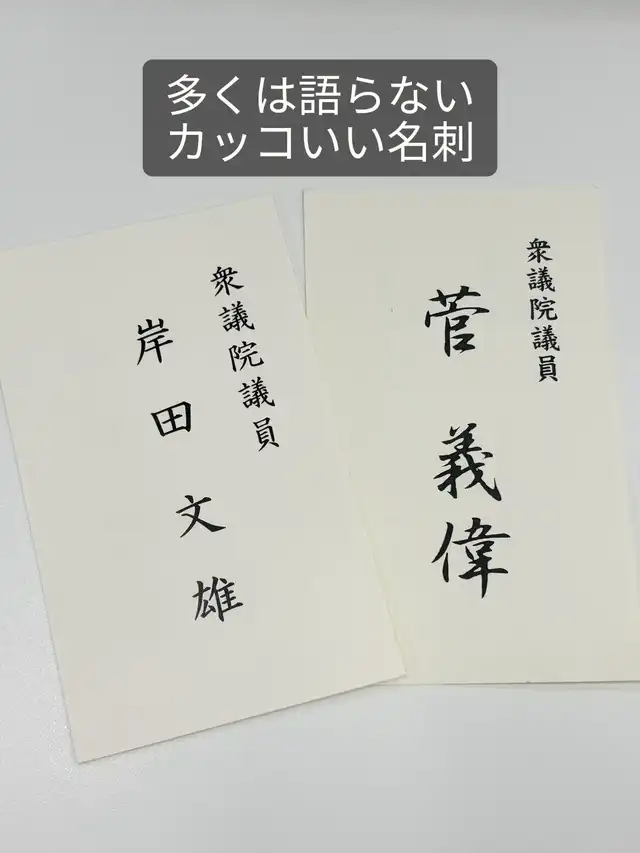 多くは語らない
カッコいい名刺
衆議院議員
岸田文雄
衆議院議員
菅義偉